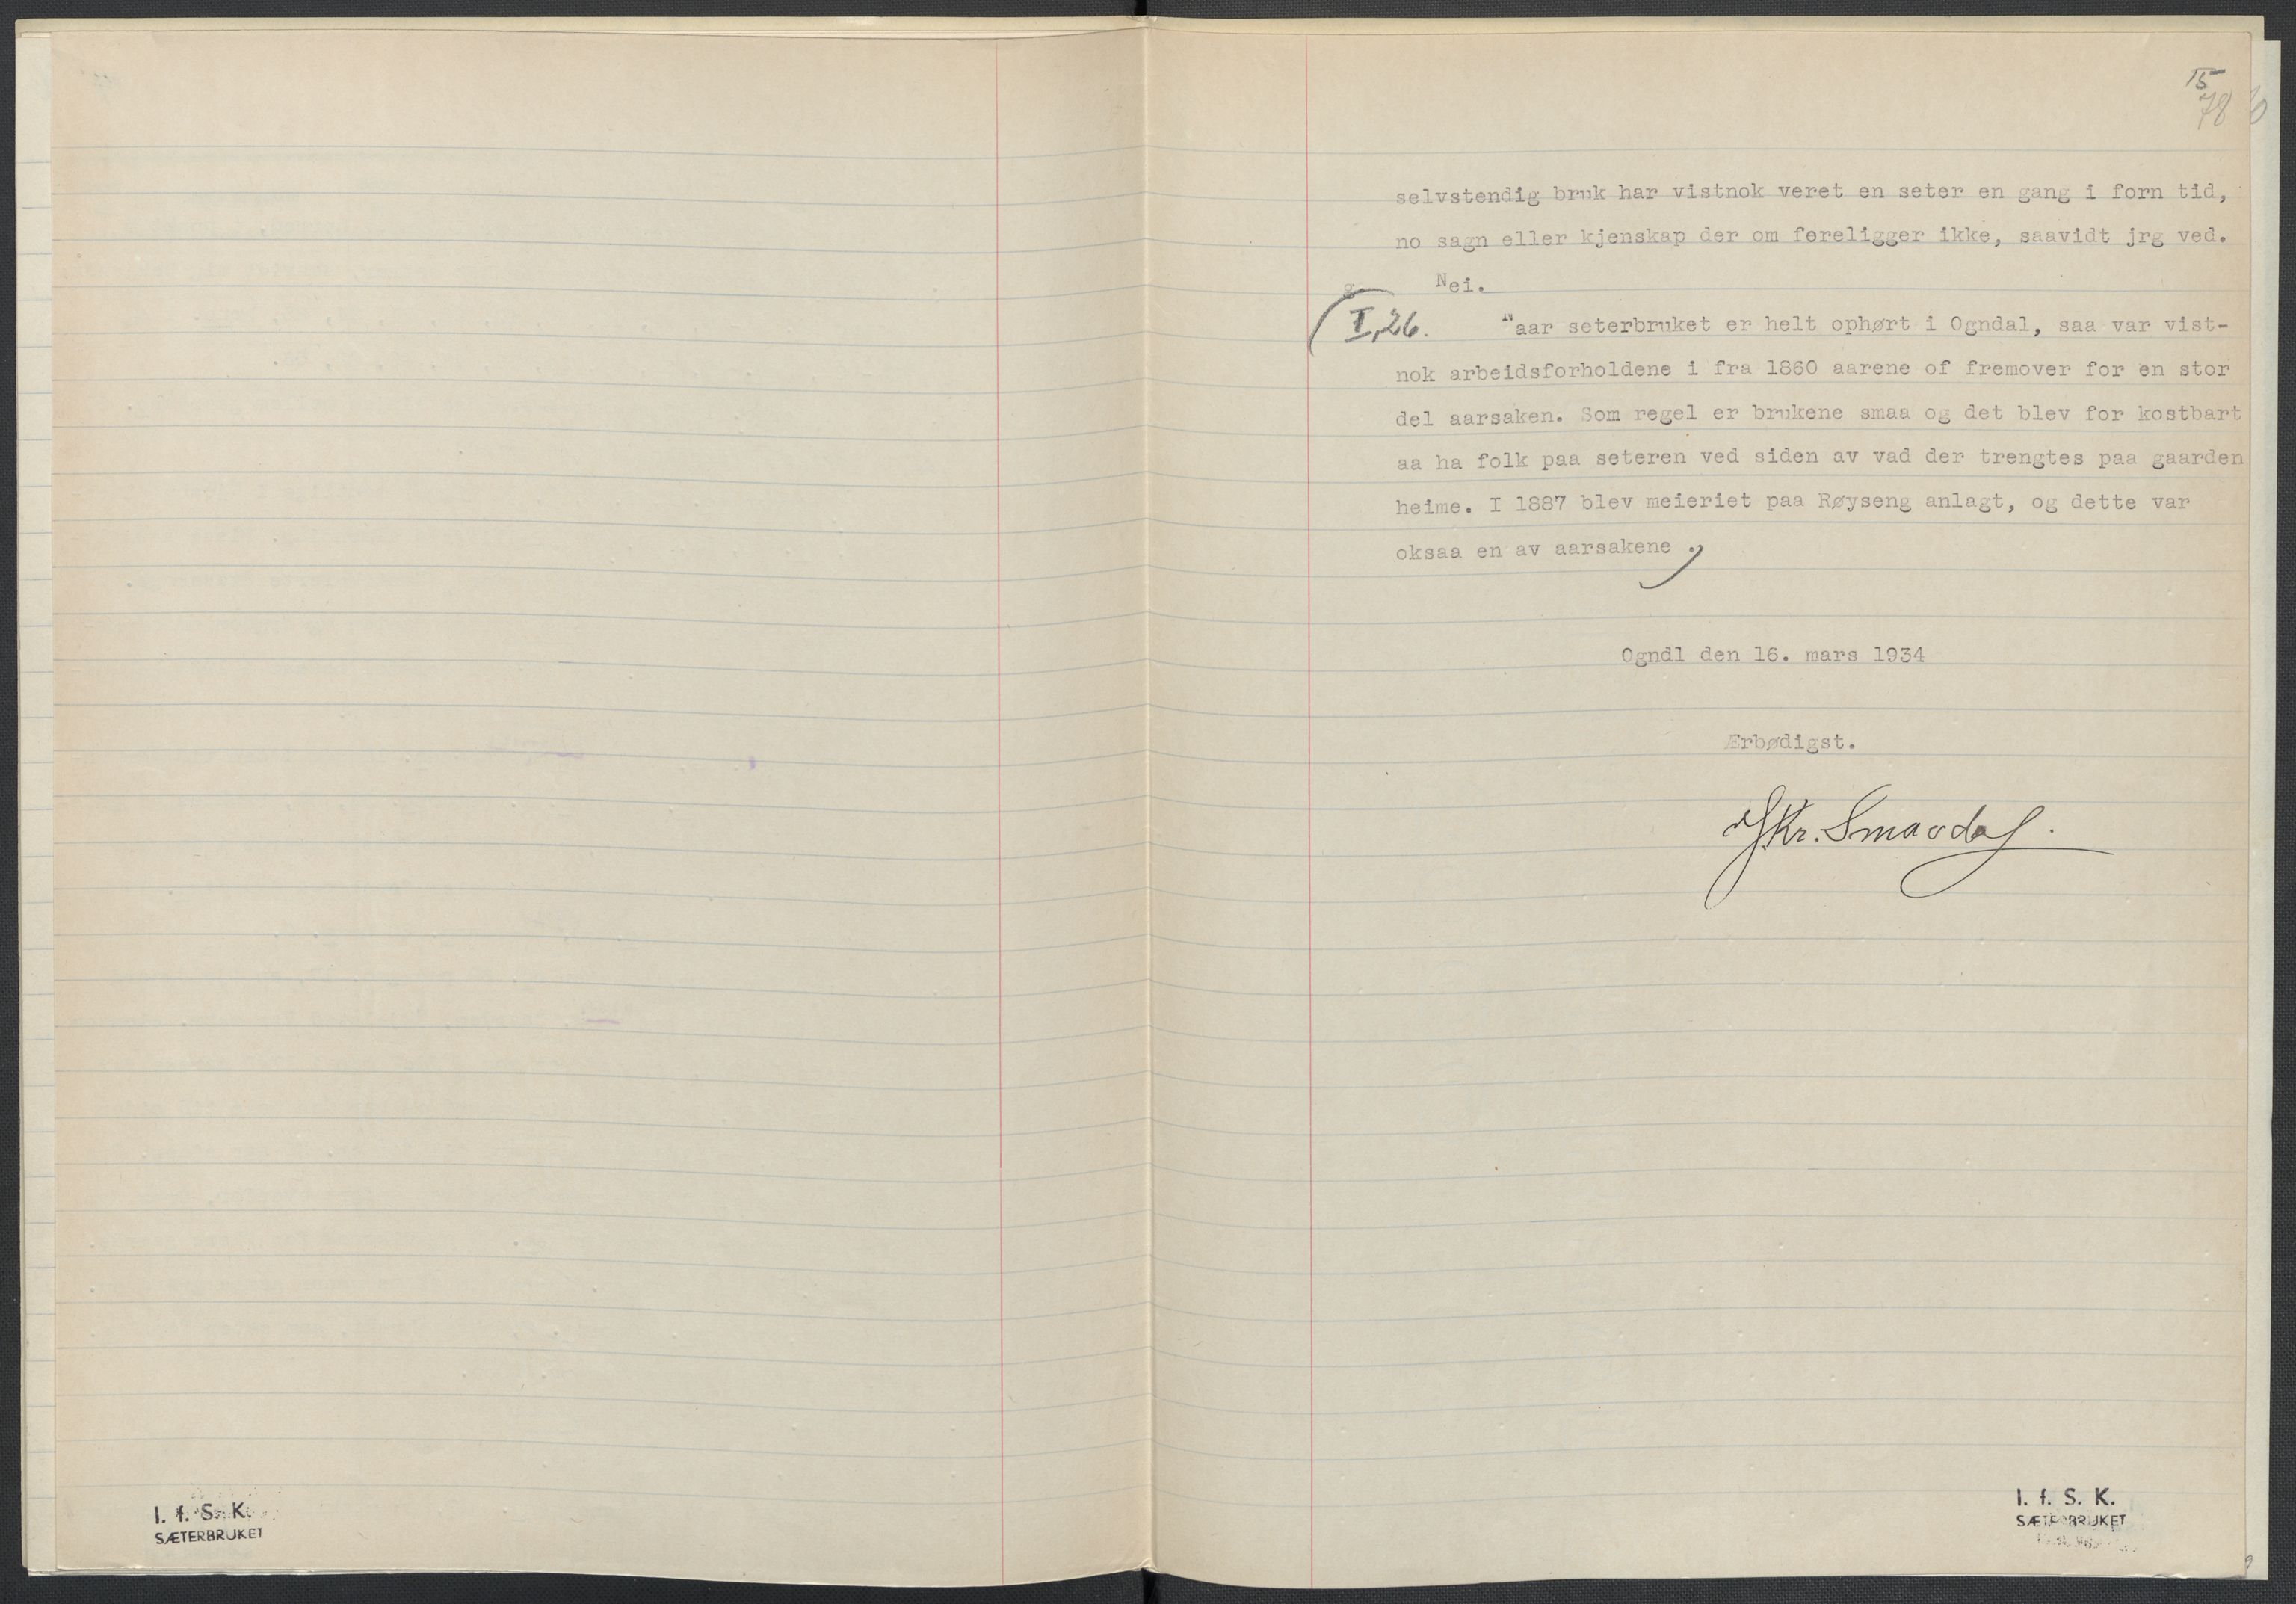 15
78
selvstendig bruk har vistnok veret en seter en gang i forn tid,
no sagn eller kjenskap der om foreligger ikke, saavidt jrg ved.
g. Nei.
(I,26. Naar seterbruket er helt ophørt i Ogndal, saa var vist-
nok arbeidsforholdene i fra 1860 aarene of fremover for en stor
del aarsaken. Som regel er brukene smaa og det blev for kostbart
aa ha folk paa seteren ved siden av vad der trengtes paa gaarden
heime. I 1887 blev meieriet paa Røyseng anlagt, og dette var
oksaa en av aarsakene .)
Ogndl den 16. mars 1934
Ærbødigst.
Kr. Smaadal.
I. f. S. K.
SÆTERBRUKET
I. f. S. K.
SÆTERBRUKET